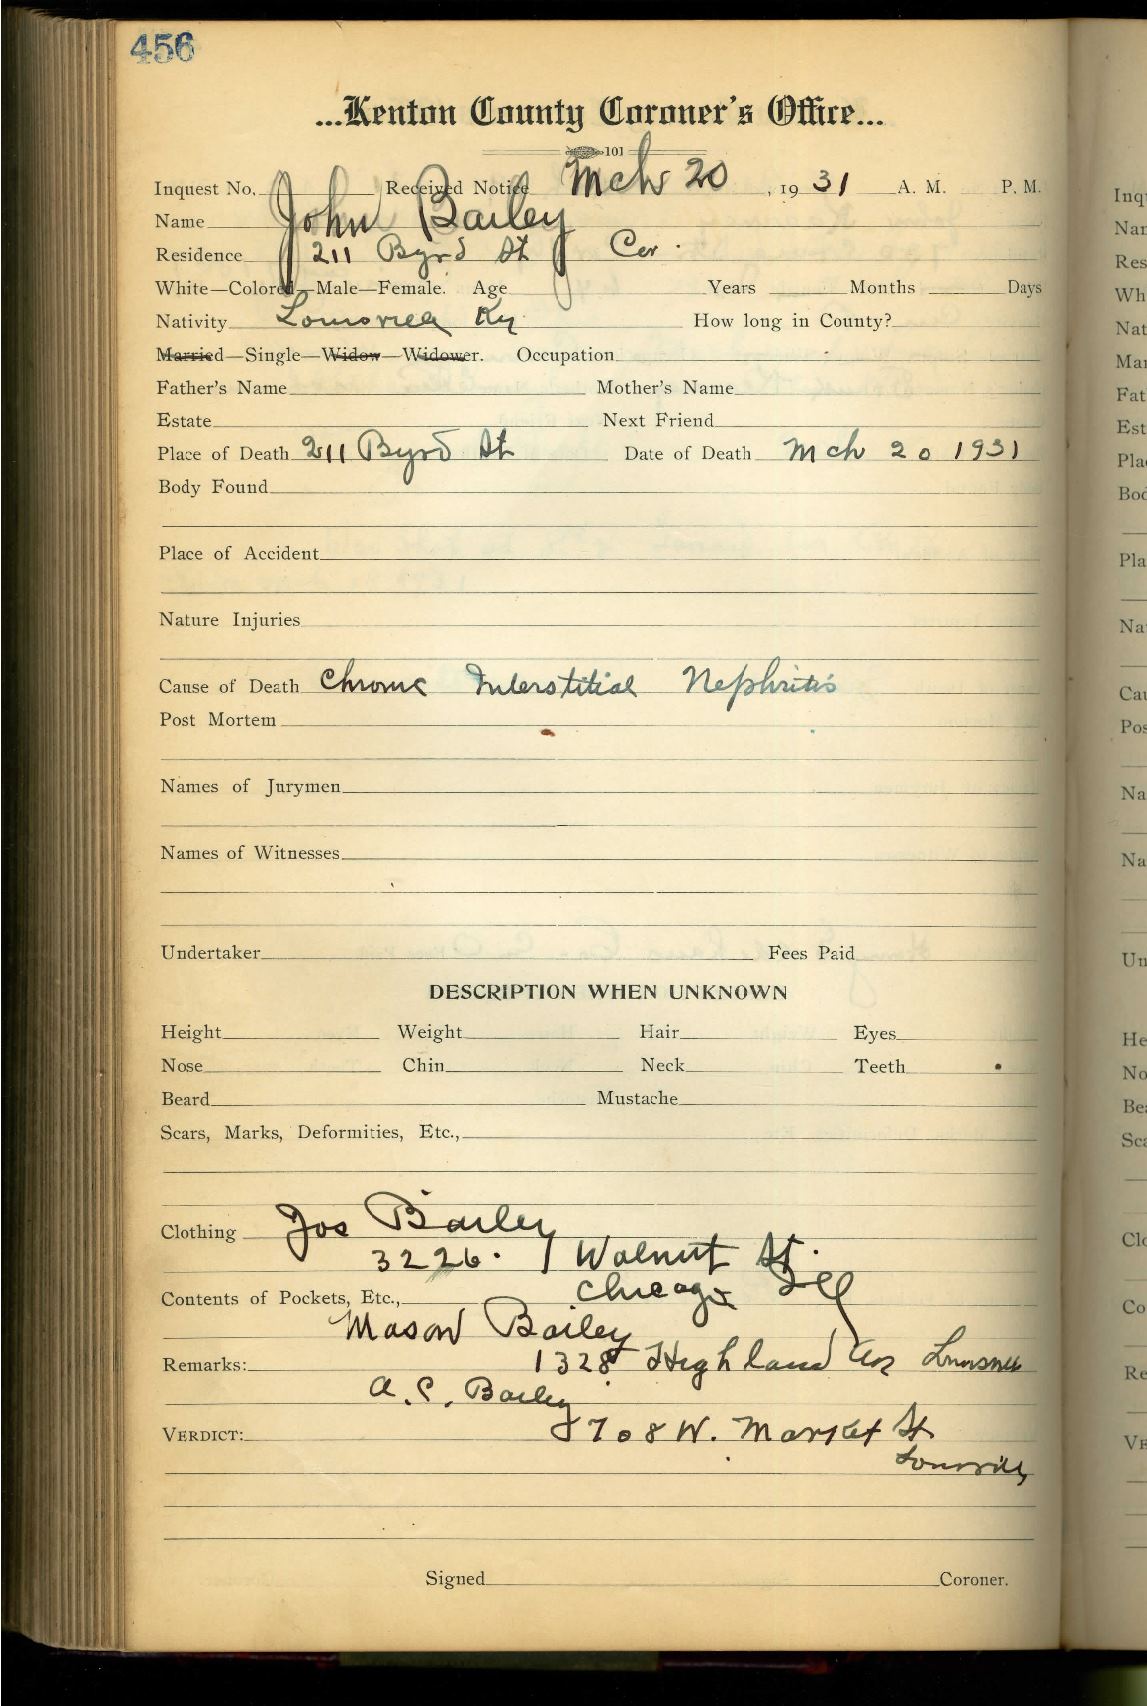 456
...Kenton County Coroner's Office...
101
Inquest No. Received Notice Mch 20, 1931 A. M. P. M.
Name John Bailey
Residence 211 Byrd St Cov.
White—Colored—Male—Female. Age Years Months Days
Nativity Louisville Ky How long in County?
Married—Single—Widow—Widower. Occupation
Father's Name Mother's Name
Estate Next Friend
Place of Death 211 Byrd St Date of Death Mch 20 1931
Body Found
Place of Accident
Nature Injuries
Cause of Death Chronic Interstitial Nephritis
Post Mortem
Names of Jurymen
Names of Witnesses
Undertaker Fees Paid
DESCRIPTION WHEN UNKNOWN
Height Weight Hair Eyes
Nose Chin Neck Teeth
Beard Mustache
Scars, Marks, Deformities, Etc.,
Clothing Jos Bailey
3226. Walnut St.
Contents of Pockets, Etc., Chicago Ill
Mason Bailey
Remarks: 1328 Highland Av Louisville
A. C. Bailey
VERDICT: 708 W. Market St
Louisville
Signed Coroner.
Inq
Nar
Res
Wh
Nat
Mar
Fat
Est
Pla
Bod
Pla
Na
Cau
Pos
Na
Na
Un
He
No
Bea
Sca
Clo
Co
Re
VE